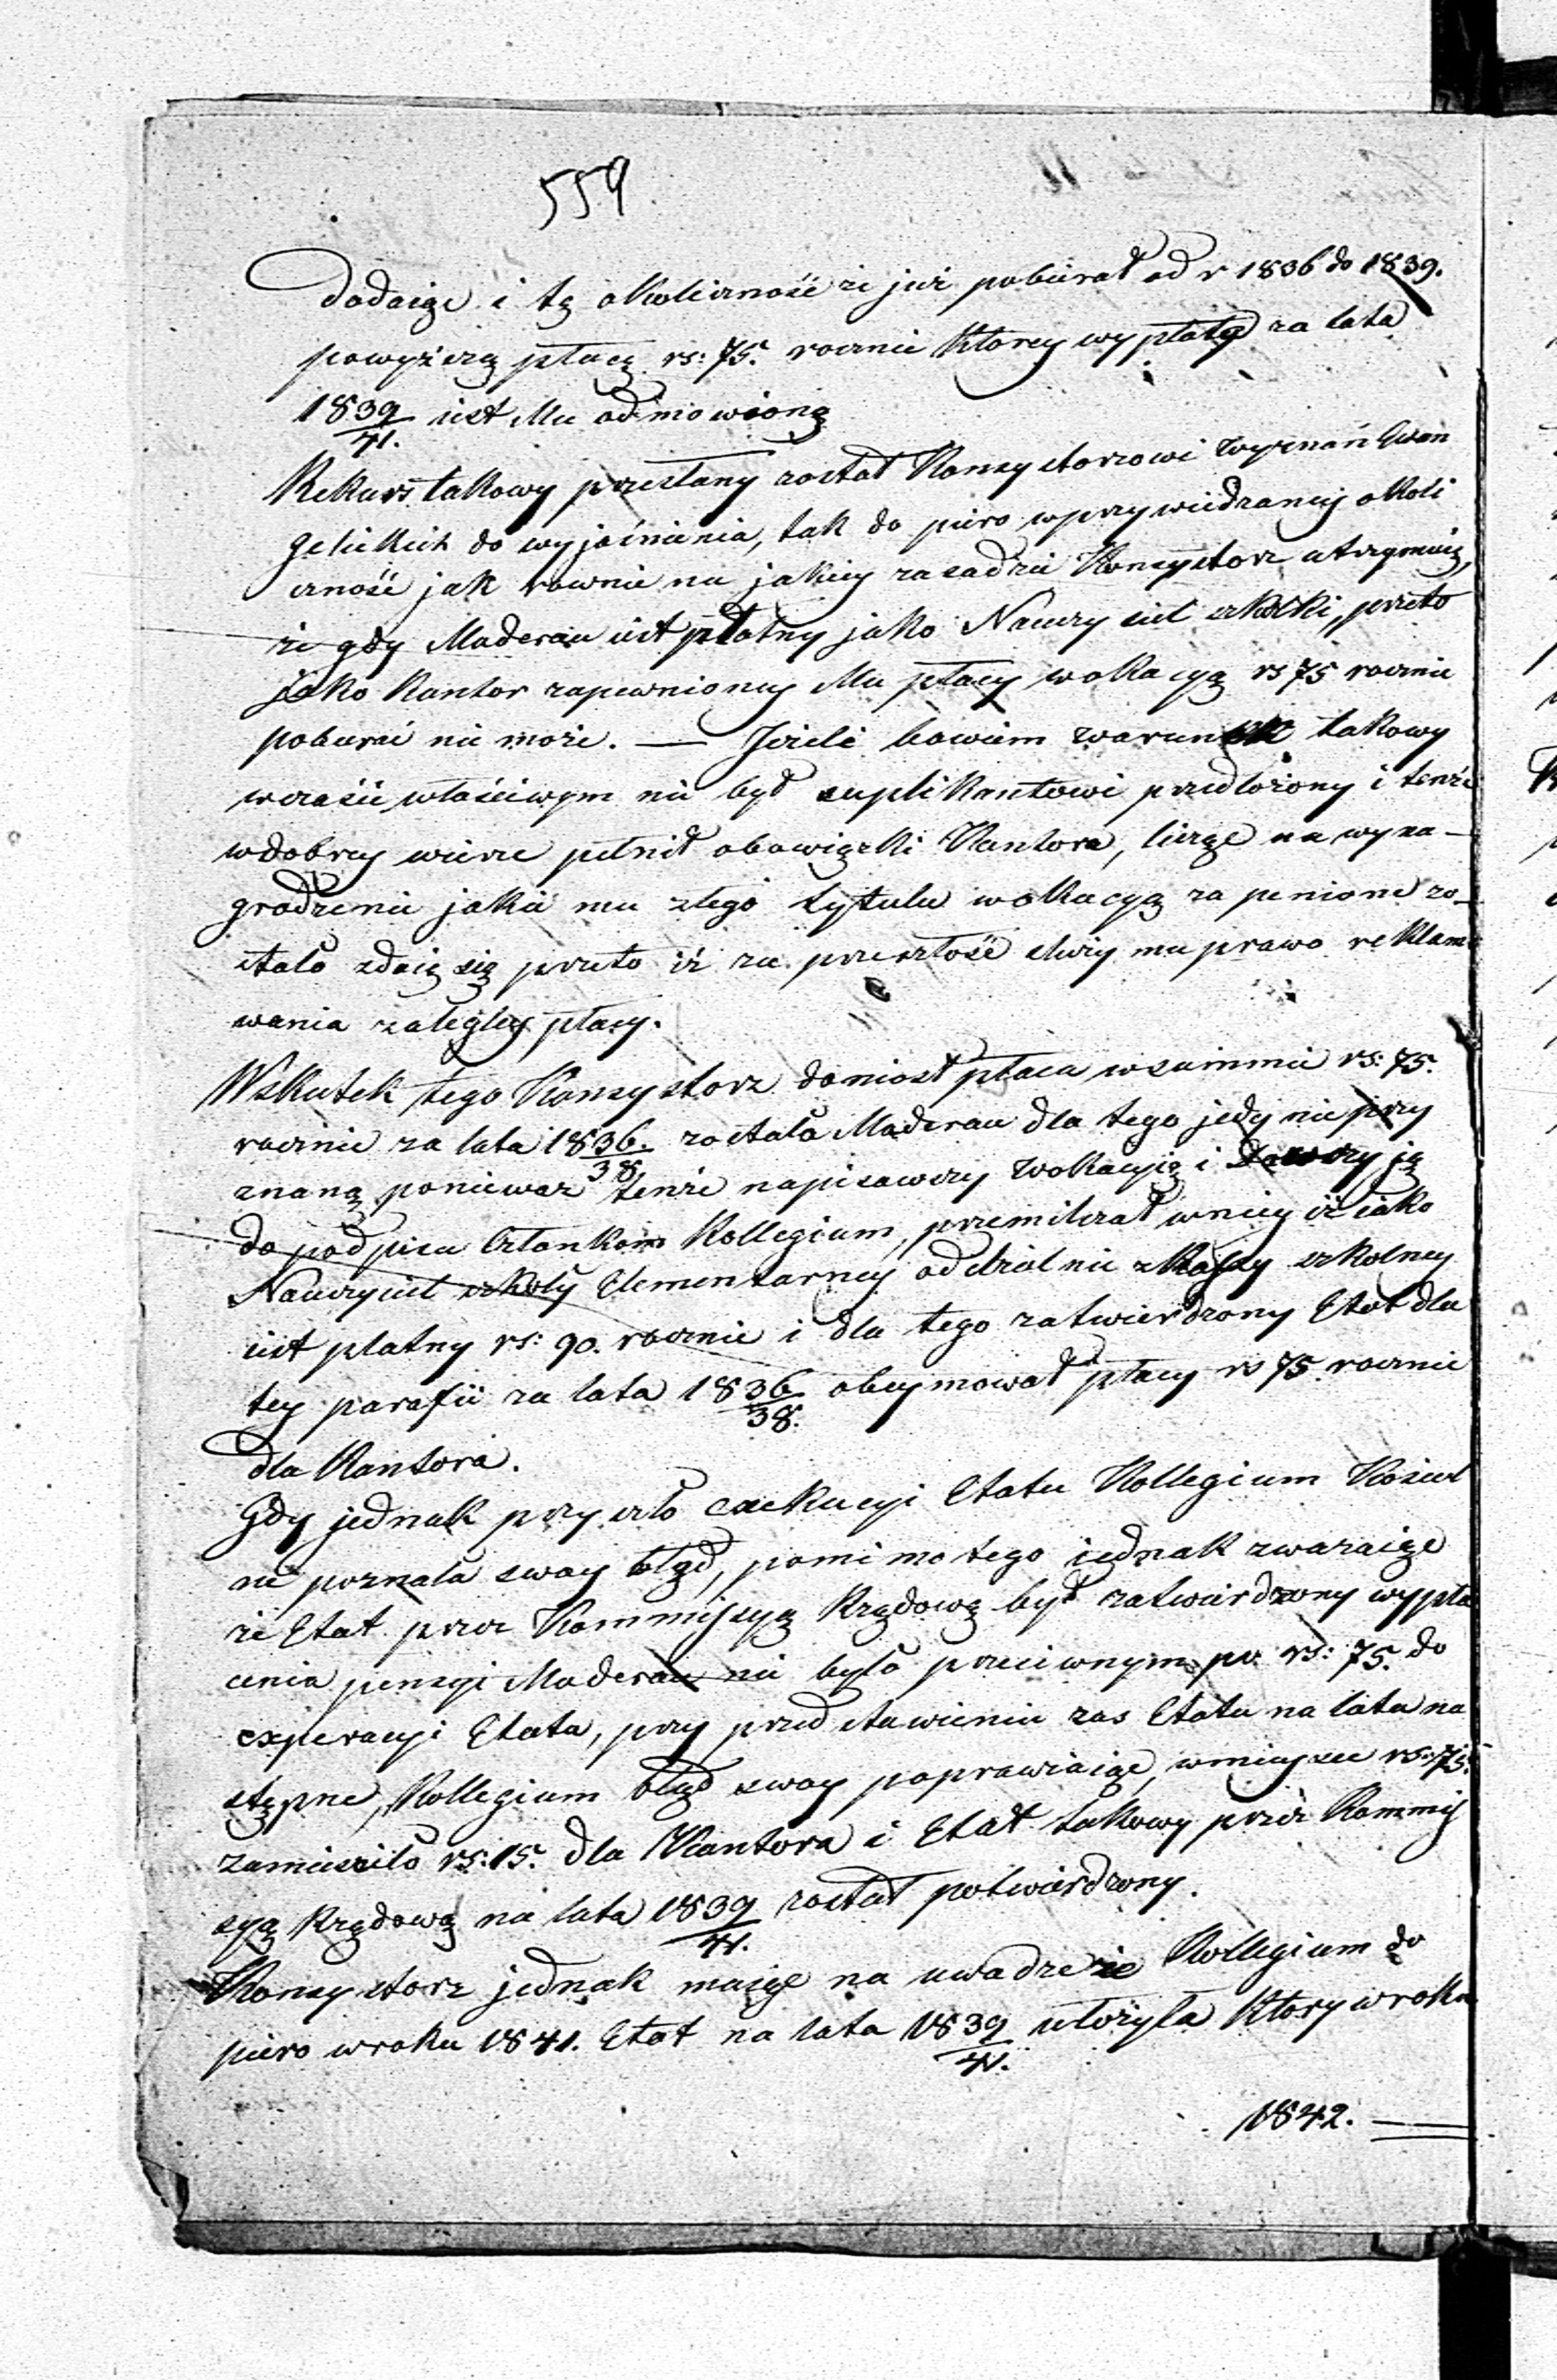 559
Dodaiąc i tę okoliczność że już pobierał od r 1836 do 1839.
powyższą płacę rs: 75. rocznie ktorey wypłatę za lata
1839/41. iest Mu odmowioną
Rekurs takowy przesłany został Konsystorzowi Wyznań Ewan
gelickich do wyjaśnienia, tak do piero w przywiedzaney okoli
czność jak rownie na jakiey zasadzie Konsystorz utrzymuię,
że gdy Maderau iest płatny jako Nauczyciel szkołki, przeto
jako Kantor zapewnioney Mu płacy wokacyą rs 75 rocznie
pobierać nie może. — Jeżeli bowiem warunek takowy
w czasie właściwym nie był suplikantowi przedłożony i tenże
w dobrey wierze pełnił obowiązki Kantora, licząc na wyna-
grodzenie jakie mu z tego tytułu wokacyą zapenione zo-
stało zdaię się przeto iż za przeszłość służy mu prawo reklamo
wania zaległey płacy.
Wskutek tego Konsystorz doniosł płaca w summie rs: 75.
rocznie za lata 1836/38. została Maderau dla tego jedynie przy
znaną ponieważ tenże napisawszy Wokacyią i dawszy ją
do podpisu Członkom Kollegium, przemilczał w niey iż iako
Nauczyciel szkoły Elementarney oddzielnie z kassy szkolney
iest płatny rs: 90. rocznie i dla tego zatwierdzony Etat dla
tey parafii za lata 1836/38. obeymował płacy rs 75 rocznie
dla Kantora.
Gdy jednak przyszło exekucyi Etatu Kollegium Kościel
ne poznała swoy błąd, pomimo tego iednak zwazaiąc
że Etat przez Kommissyą Rządową był zatwierdzony wypła
cenia pensyi Maderau nie było przeciwnym po rs: 75. do
experacyi Etata, przy przedstawieniu zas Etatu na lata na
stępne, Kollegium błąd swoy poprawiaiąc, w mieysce rs: 75.
zamieszciło rs: 15. dla Kantora i Etat takowy przez Kommis
syą Rządową na lata 1839/41. został potwierdzony.
Konsystorz jednak maiąc na uwadze że Kollegium do
piero w roku 1841. Etat na lata 1839/41. ułożyła ktory w roku
1842. —